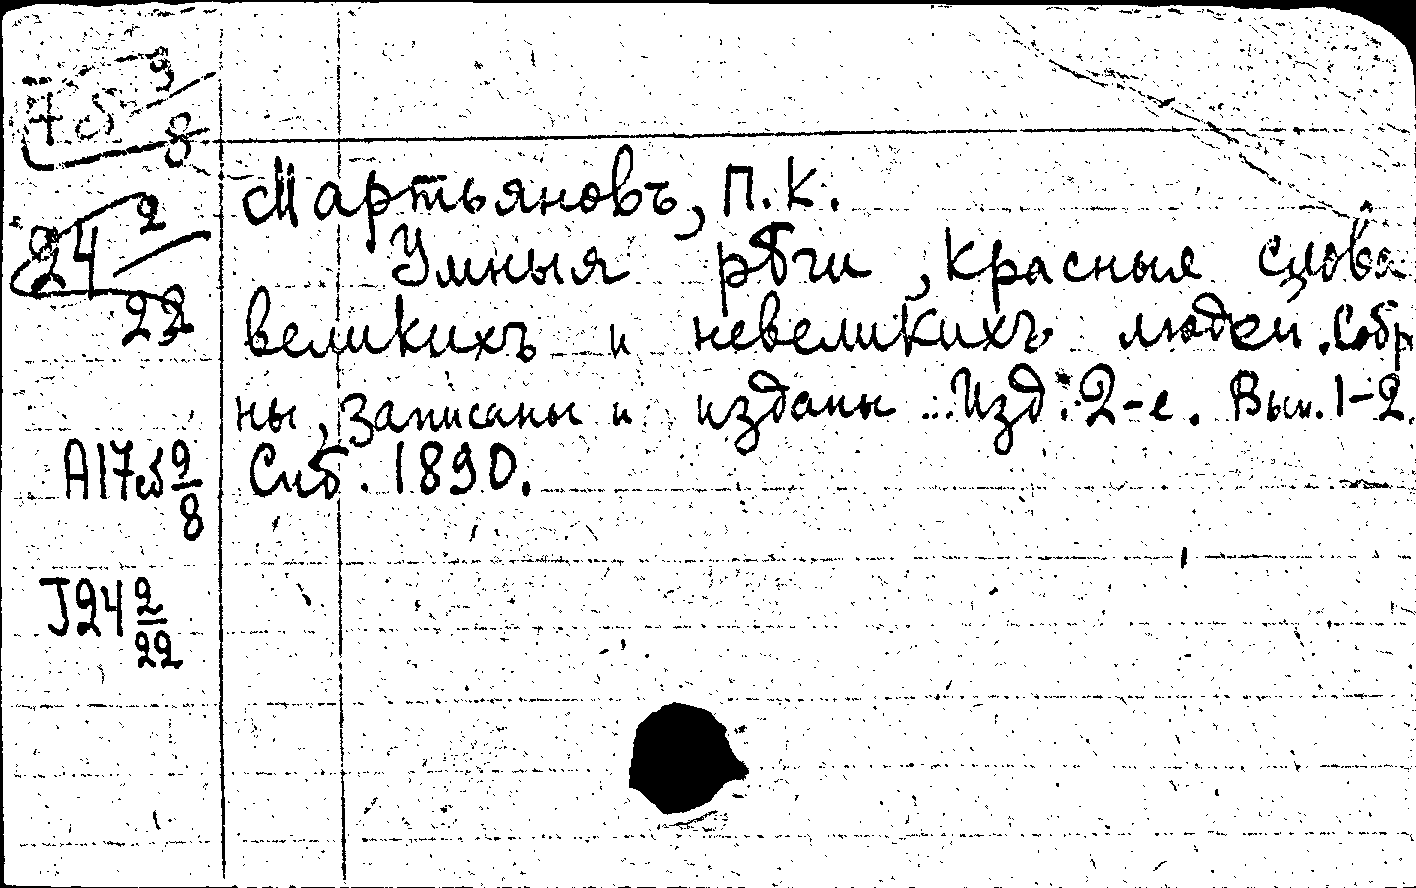 Мартьяновъ, П. К.
Умныя рѣчи, красныя слова
великихъ и невеликихъ людей. Собр
ны, записаны и изданы ... Изд. 2-е. Вып. 1-2.
А17об 9/8 Спб. 1890.
24 2/22
J24 2/22